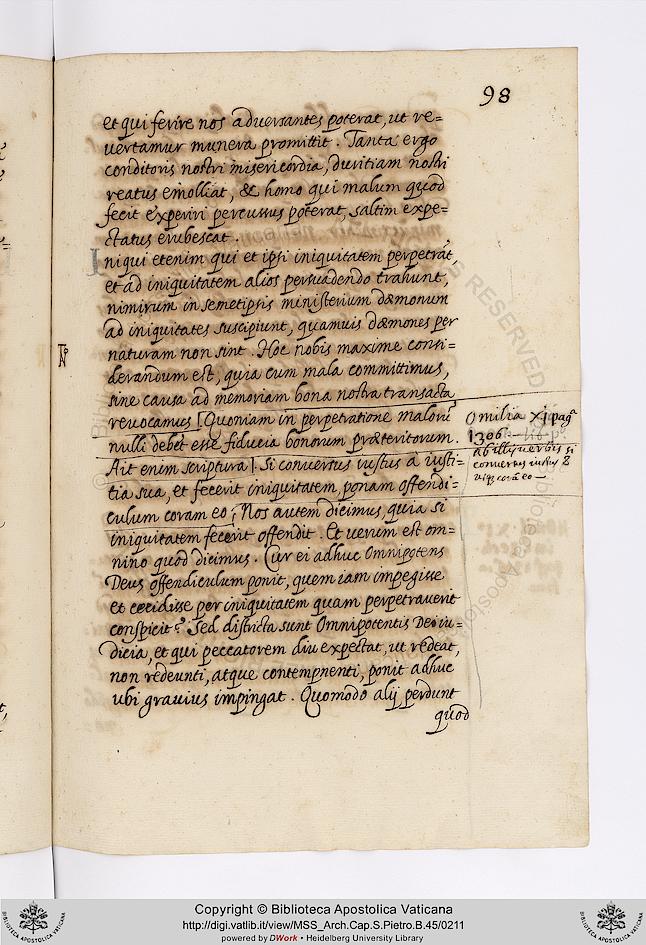 98
et qui ferire nos adversantes poterat, ut re=
vertamur munera promittit. Tanta ergo
conditoris nostri misericordia, duritiam nostri
reatus emolliat, & homo qui malum quod
fecit experiri percussus poterat, saltim expe=
ctatus erubescat.
Iniqui etenim qui et ipsi iniquitatem perpetrāt,
et ad iniquitatem alios persuadendo trahunt,
nimirum in semetipsis ministerium dæmonum
ad iniquitates suscipiunt, quamvis dæmones per
naturam non sint. Hoc nobis maxime consi=
derandum est, quia cum mala committimus,
sine causa ad memoriam bona nostra transacta
revocamus [Quoniam in perpetratione malorū
nulli debet esse fiducia bonorum præteritorum.
Ait enim scriptura]. Si conversus iustus a iusti=
tia sua, et fecerit iniquitatem, ponam offendi=
culum coram eo; Nos autem dicimus, quia si
iniquitatem fecerit offendit. Et verum est om=
nino quod dicimus. Cur ei adhuc Omnipotens
Deus offendiculum ponit, quem iam impegisse
et cecidisse per iniquitatem quam perpetraverit
conspicit? Sed districta sunt Omnipotentis Dei iu=
dicia, et qui peccatorem diu expectat, ut redeat,
non redeunti, atque contemnenti, ponit adhuc
ubi gravius impingat. Quomodo alij perdunt
quod
Omilia XI pag
1306
ab illis verbis si
conversus iustus &
usq; corā eo
Copyright © Biblioteca Apostolica Vaticana
http://digi.vatlib.it/view/MSS_Arch.Cap.S.Pietro.B.45/0211
powered by DWork • Heidelberg University Library